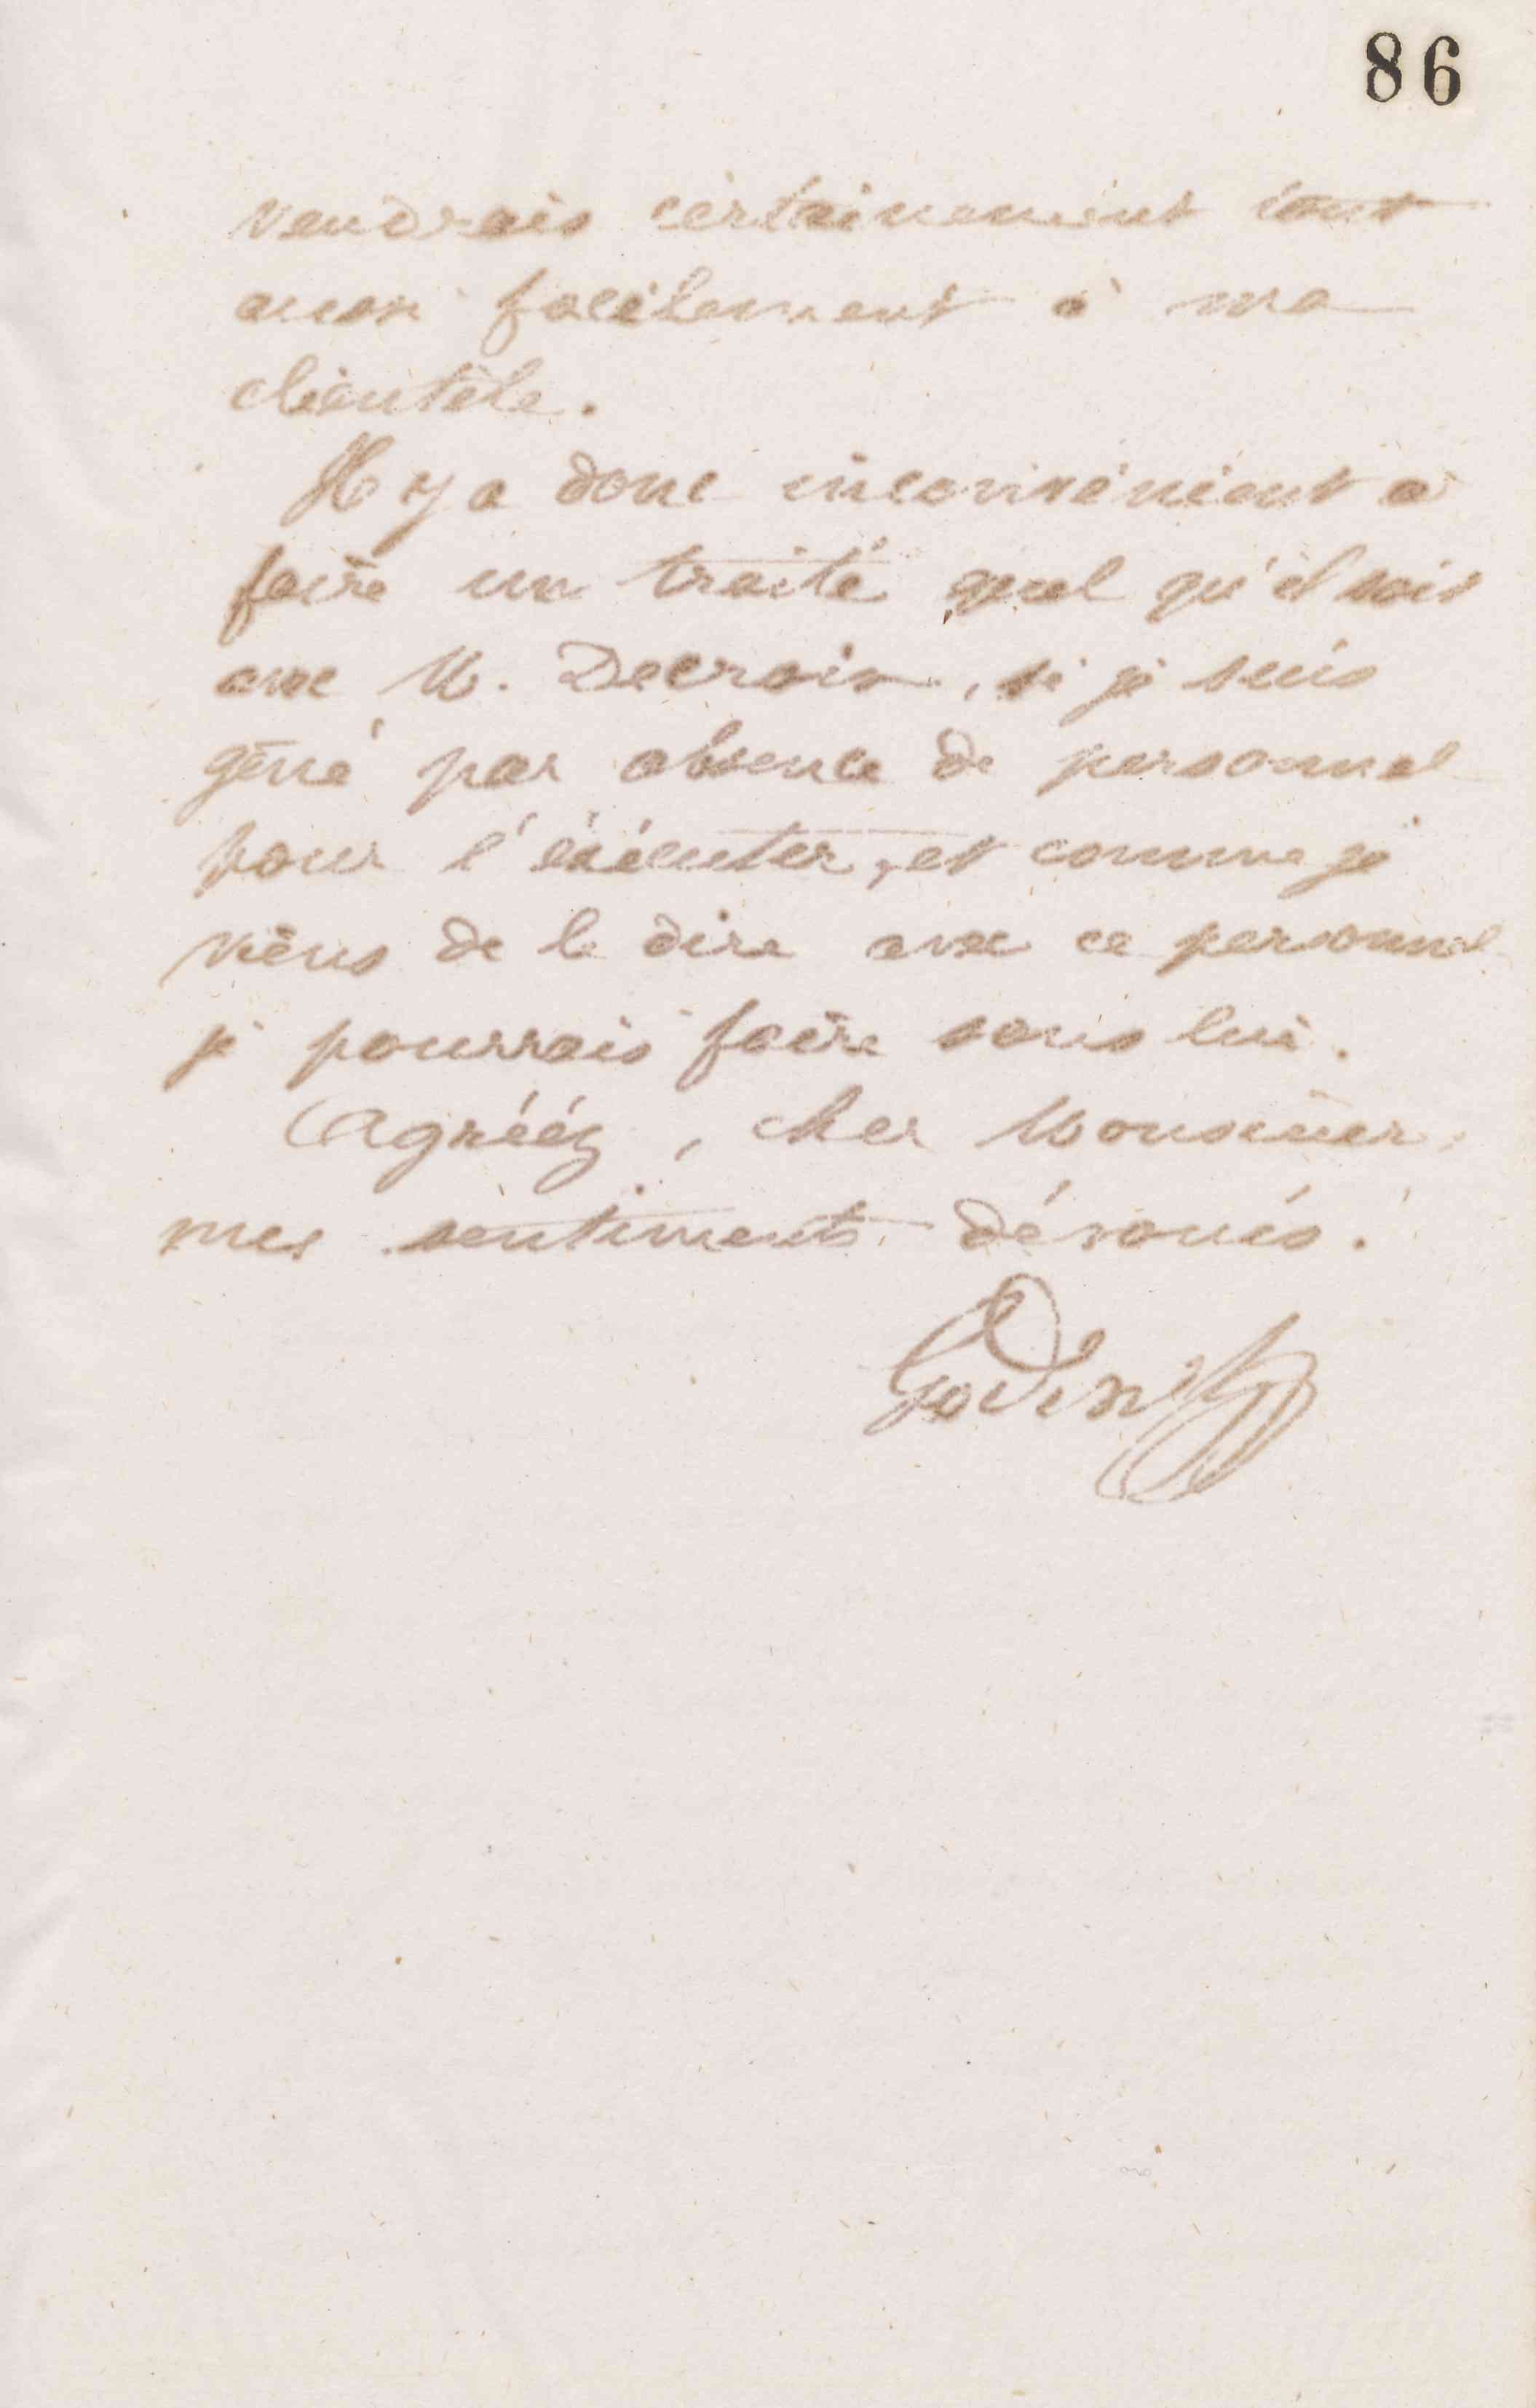 86
vendrais certainement tout
aussi facilement à ma
clientèle.
Il y a donc inconvénient à
faire un traité quel qu'il soit
avec M. Decroix, si je suis
gêné par absence de personnel
pour l'éxécuter, et comme je
viens de le dire avec ce personnel
je pourrais faire sans lui.
Agréez, cher Monsieur,
mes sentiments dévoués.
Godin